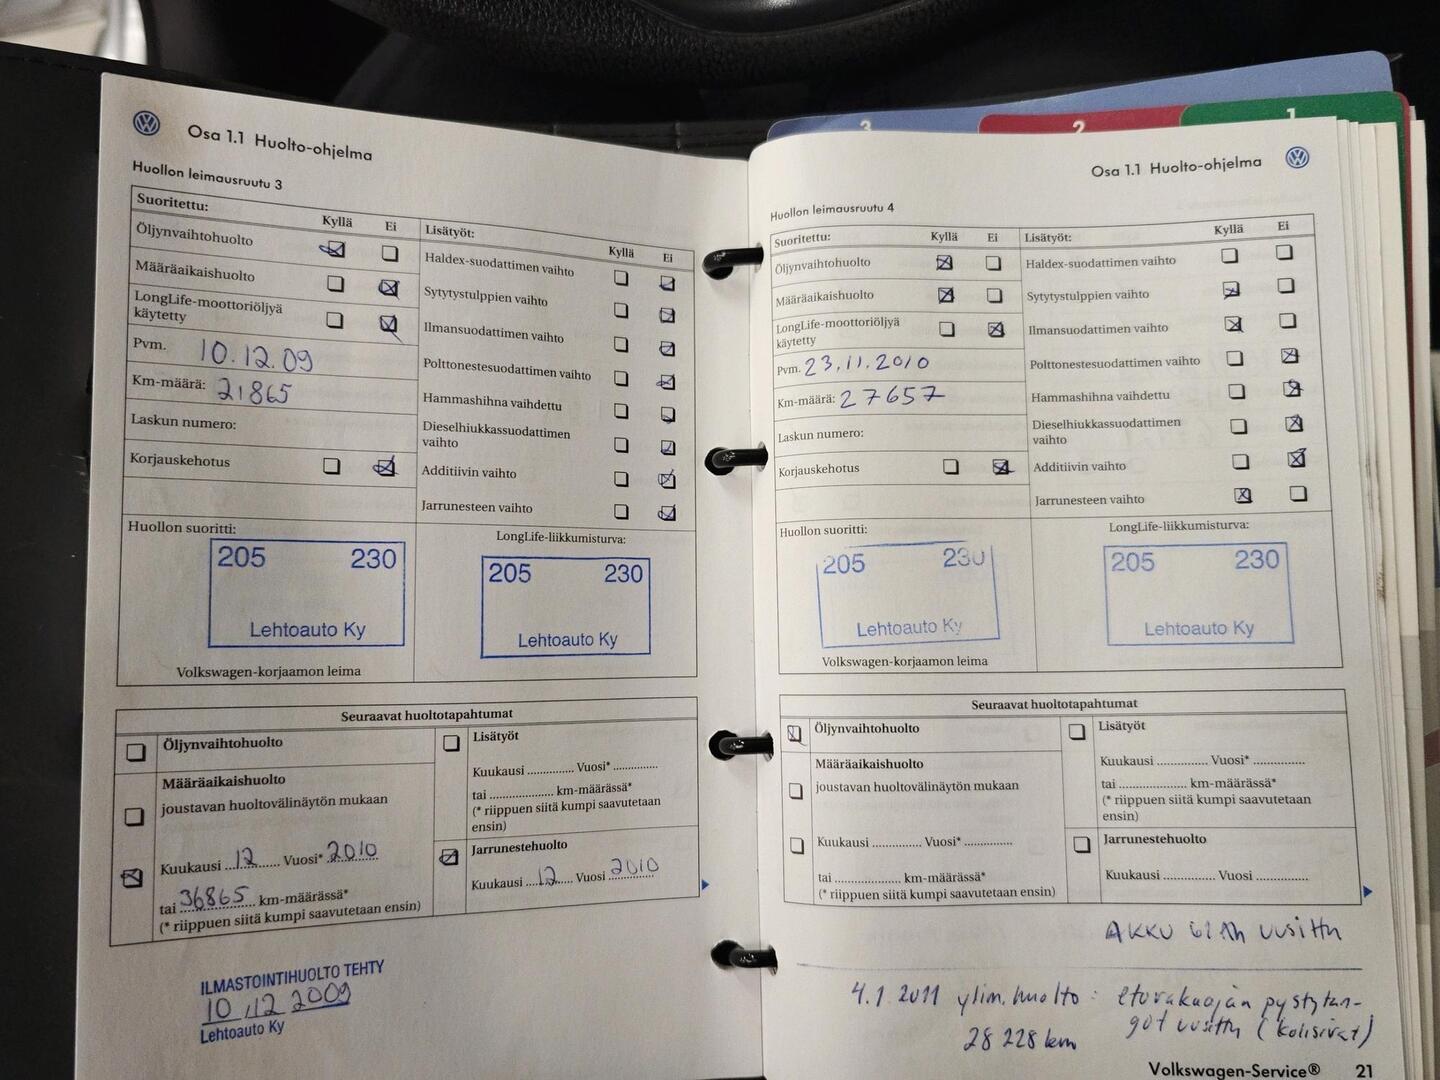 3
2
1
Osa 1.1 Huolto-ohjelma
Huollon leimausruutu 3
Suoritettu:
Kyllä Ei
Öljynvaihtohuolto
Määräaikaishuolto
LongLife-moottoriöljyä
käytetty
Pvm. 10.12.09
Km-määrä: 21865
Laskun numero:
Korjauskehotus
Lisätyöt:
Kyllä Ei
Haldex-suodattimen vaihto
Sytytystulppien vaihto
Ilmansuodattimen vaihto
Polttonestesuodattimen vaihto
Hammashihna vaihdettu
Dieselhiukkassuodattimen
vaihto
Additiivin vaihto
Jarrunesteen vaihto
Huollon suoritti:
205 230
Lehtoauto Ky
Volkswagen-korjaamon leima
LongLife-liikkumisturva:
205 230
Lehtoauto Ky
Seuraavat huoltotapahtumat
Öljynvaihtohuolto
Määräaikaishuolto
joustavan huoltovälinäytön mukaan
Kuukausi 12 Vuosi* 2010
tai 36865 km-määrässä*
(* riippuen siitä kumpi saavutetaan ensin)
Lisätyöt
Kuukausi ............... Vuosi* ..............
tai .................... km-määrässä*
(* riippuen siitä kumpi saavutetaan
ensin)
Jarrunestehuolto
Kuukausi 12 Vuosi 2010
ILMASTOINTIHUOLTO TEHTY
10.12 2009
Lehtoauto Ky
Osa 1.1 Huolto-ohjelma
Huollon leimausruutu 4
Suoritettu:
Kyllä Ei
Öljynvaihtohuolto
Määräaikaishuolto
LongLife-moottoriöljyä
käytetty
Pvm. 23.11.2010
Km-määrä: 27657
Laskun numero:
Korjauskehotus
Lisätyöt:
Kyllä Ei
Haldex-suodattimen vaihto
Sytytystulppien vaihto
Ilmansuodattimen vaihto
Polttonestesuodattimen vaihto
Hammashihna vaihdettu
Dieselhiukkassuodattimen
vaihto
Additiivin vaihto
Jarrunesteen vaihto
Huollon suoritti:
205 230
Lehtoauto Ky
Volkswagen-korjaamon leima
LongLife-liikkumisturva:
205 230
Lehtoauto Ky
Seuraavat huoltotapahtumat
Öljynvaihtohuolto
Määräaikaishuolto
joustavan huoltovälinäytön mukaan
Kuukausi ............... Vuosi* ..............
tai .......................... km-määrässä*
(* riippuen siitä kumpi saavutetaan ensin)
Lisätyöt
Kuukausi ............... Vuosi* ..............
tai .................... km-määrässä*
(* riippuen siitä kumpi saavutetaan
ensin)
Jarrunestehuolto
Kuukausi ............... Vuosi ..............
AKKU 61Ah uusittu
4.1.2011 ylim. huolto: eturakuojan pystytan-
28 228 km got uusittu (kolisivat)
Volkswagen-Service® 21